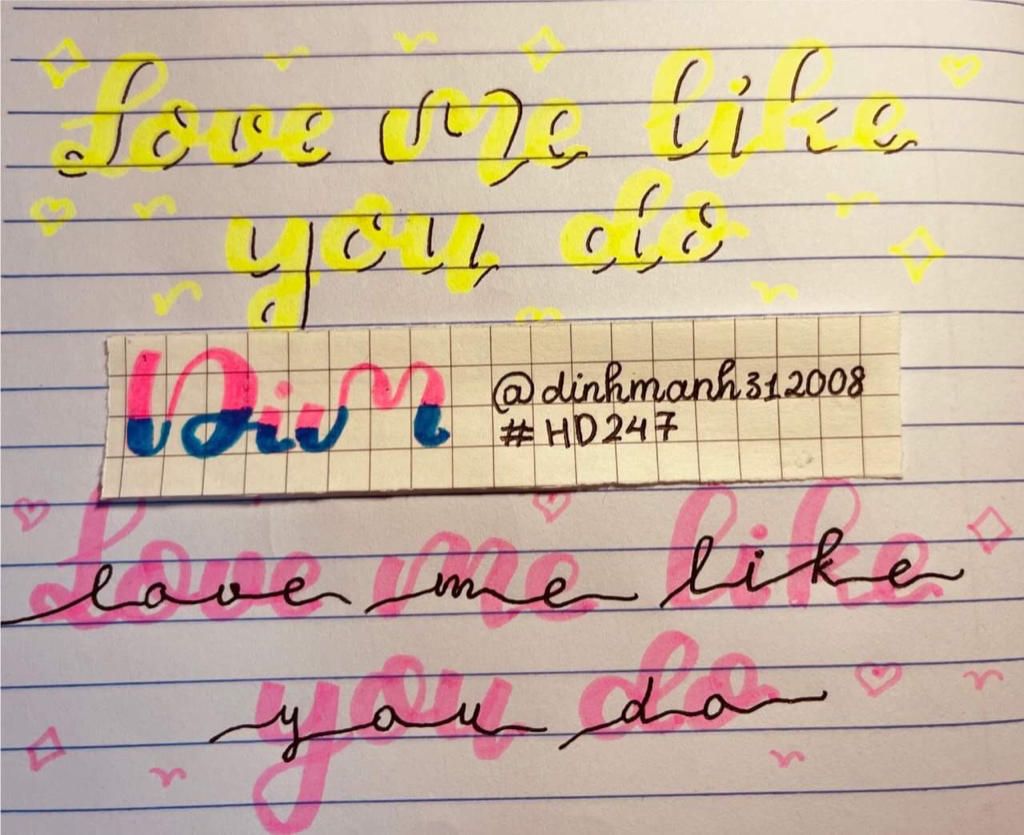 Love me like
you do
DinM
@dinhmanh312008
# HD247
Love me like
love me like
you do
you do